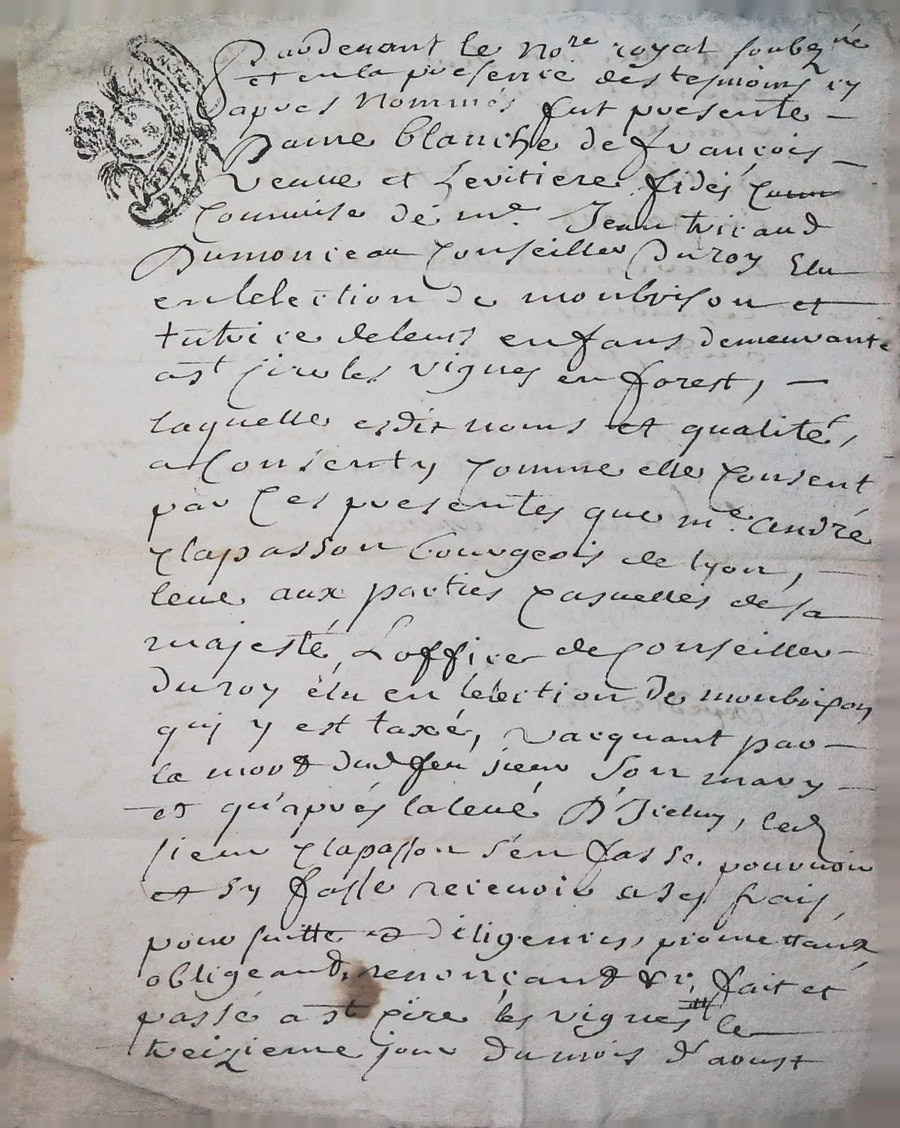 Pardevant le no.re royal soubz.né
et en la presence des tesmoins cy
apres nommés fut presente
Dame blanche de françois
veuve et heritiere fidei
commise de m.e Jean tricaud
Dumonceau conseiller Du roy Elu
en lelection de monbrison et
tutrice de leurs enfans demeurante
a st Cire les vignes en forest,
laquelle esdit noms et qualité,
a consenty comme elle consent
par ces presentes que m.e andré
clapasson bourgeois de lyon,
leve aux parties casuelles de sa
majesté, L'office de conseiller
du roy élu en lélection De monbrison
qui y est taxé, vacquant par
la mort dud feu sieur son mary
et qu'aprés la levé D'Iceluy, led
sieur clapasson s'en fasse pourvoir
et sy fasse recevoir a ses frais
poursuitte et diligences, promettant,
obligeant, renonçant &c; fait et
passé a st cire les vignes le
treizieme jour du mois d'aoust
GENE